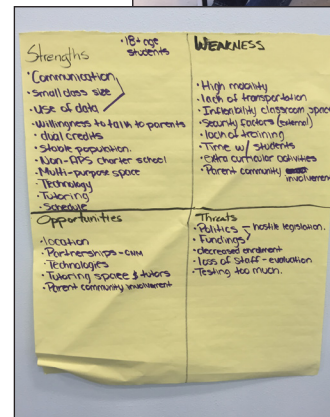 Strengths
• 18+ age
students
• Communication
• Small class size
• use of data
• Willingness to talk to parents
• dual credits
• Stable population.
• Non-APS charter school
• Multi-purpose space
• Technology
• Tutoring
• Schedule
WEAKNESS
• High mobility
• lack of transportation
• Inflexibility classroom space
• Security factors (external)
• lack of training
• Time w/ students
• extra curricular activities
• Parent community involvement
Opportunities
• location
• Partnerships - CNM
• Technologies
• Tutoring space & tutors
• Parent community involvement
Threats
• Politics - hostile legislation.
• Fundings
• decreased enrollment
• loss of staff - evaluation
• Testing too much.